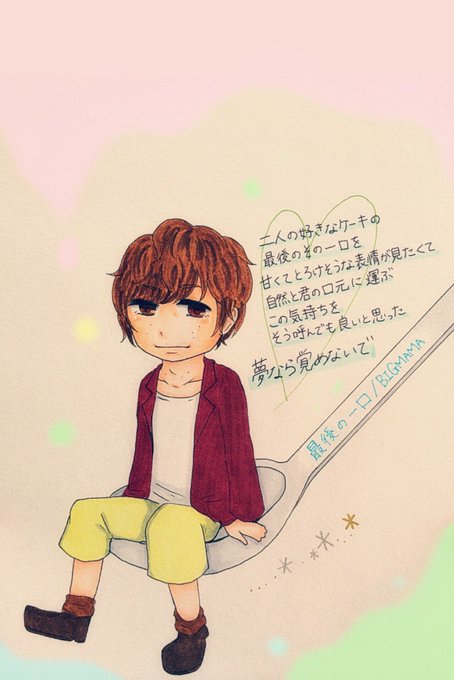 二人の好きなケーキの
最後のその一口を
甘くてとろけそうな表情が見たくて
自然と君の口元に運ぶ
この気持ちを
そう呼んでも良いと思った
夢なら覚めないで
最後の一口/BIGMAMA